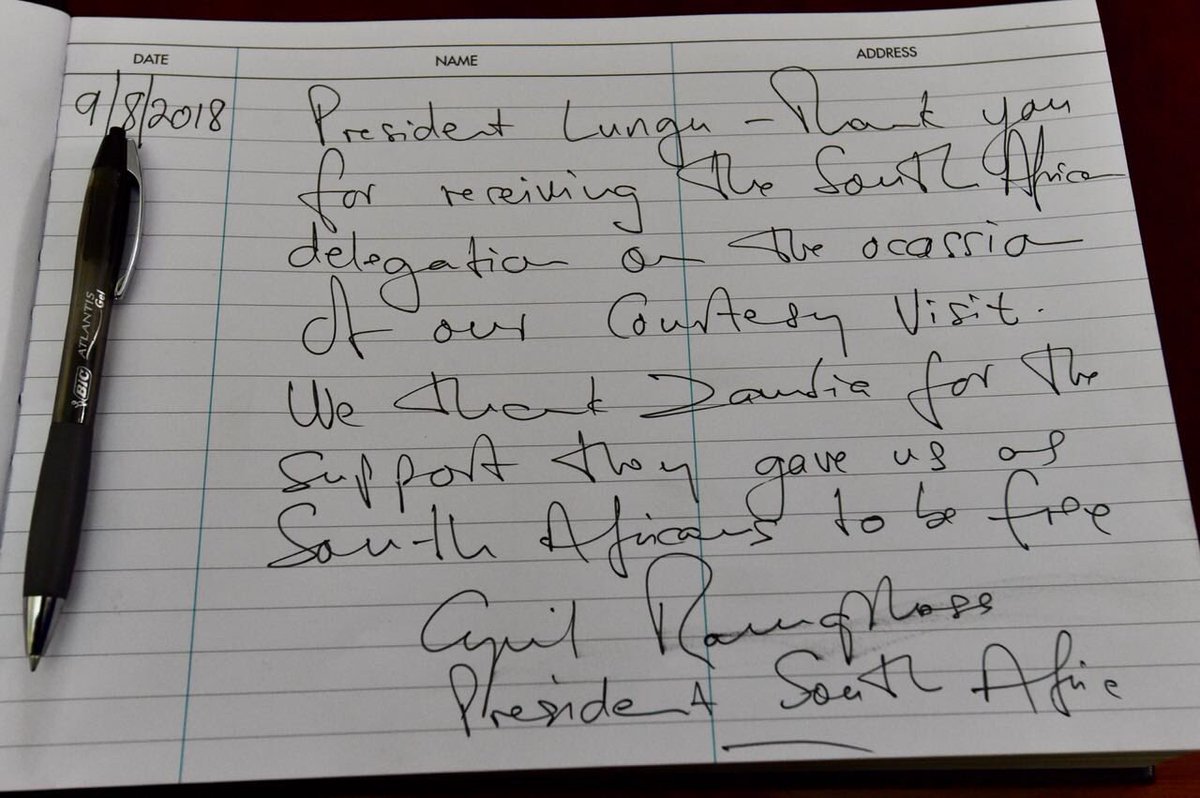 DATE NAME ADDRESS
9/8/2018 President Lungu – Thank you
for receiving the South Africa
delegation on the ocassion
of our Courtesy Visit.
We thank Zambia for the
support they gave us as
South Africans to be free
Cyril Ramaphosa
President South Africa
BIC ATLANTIS Gel